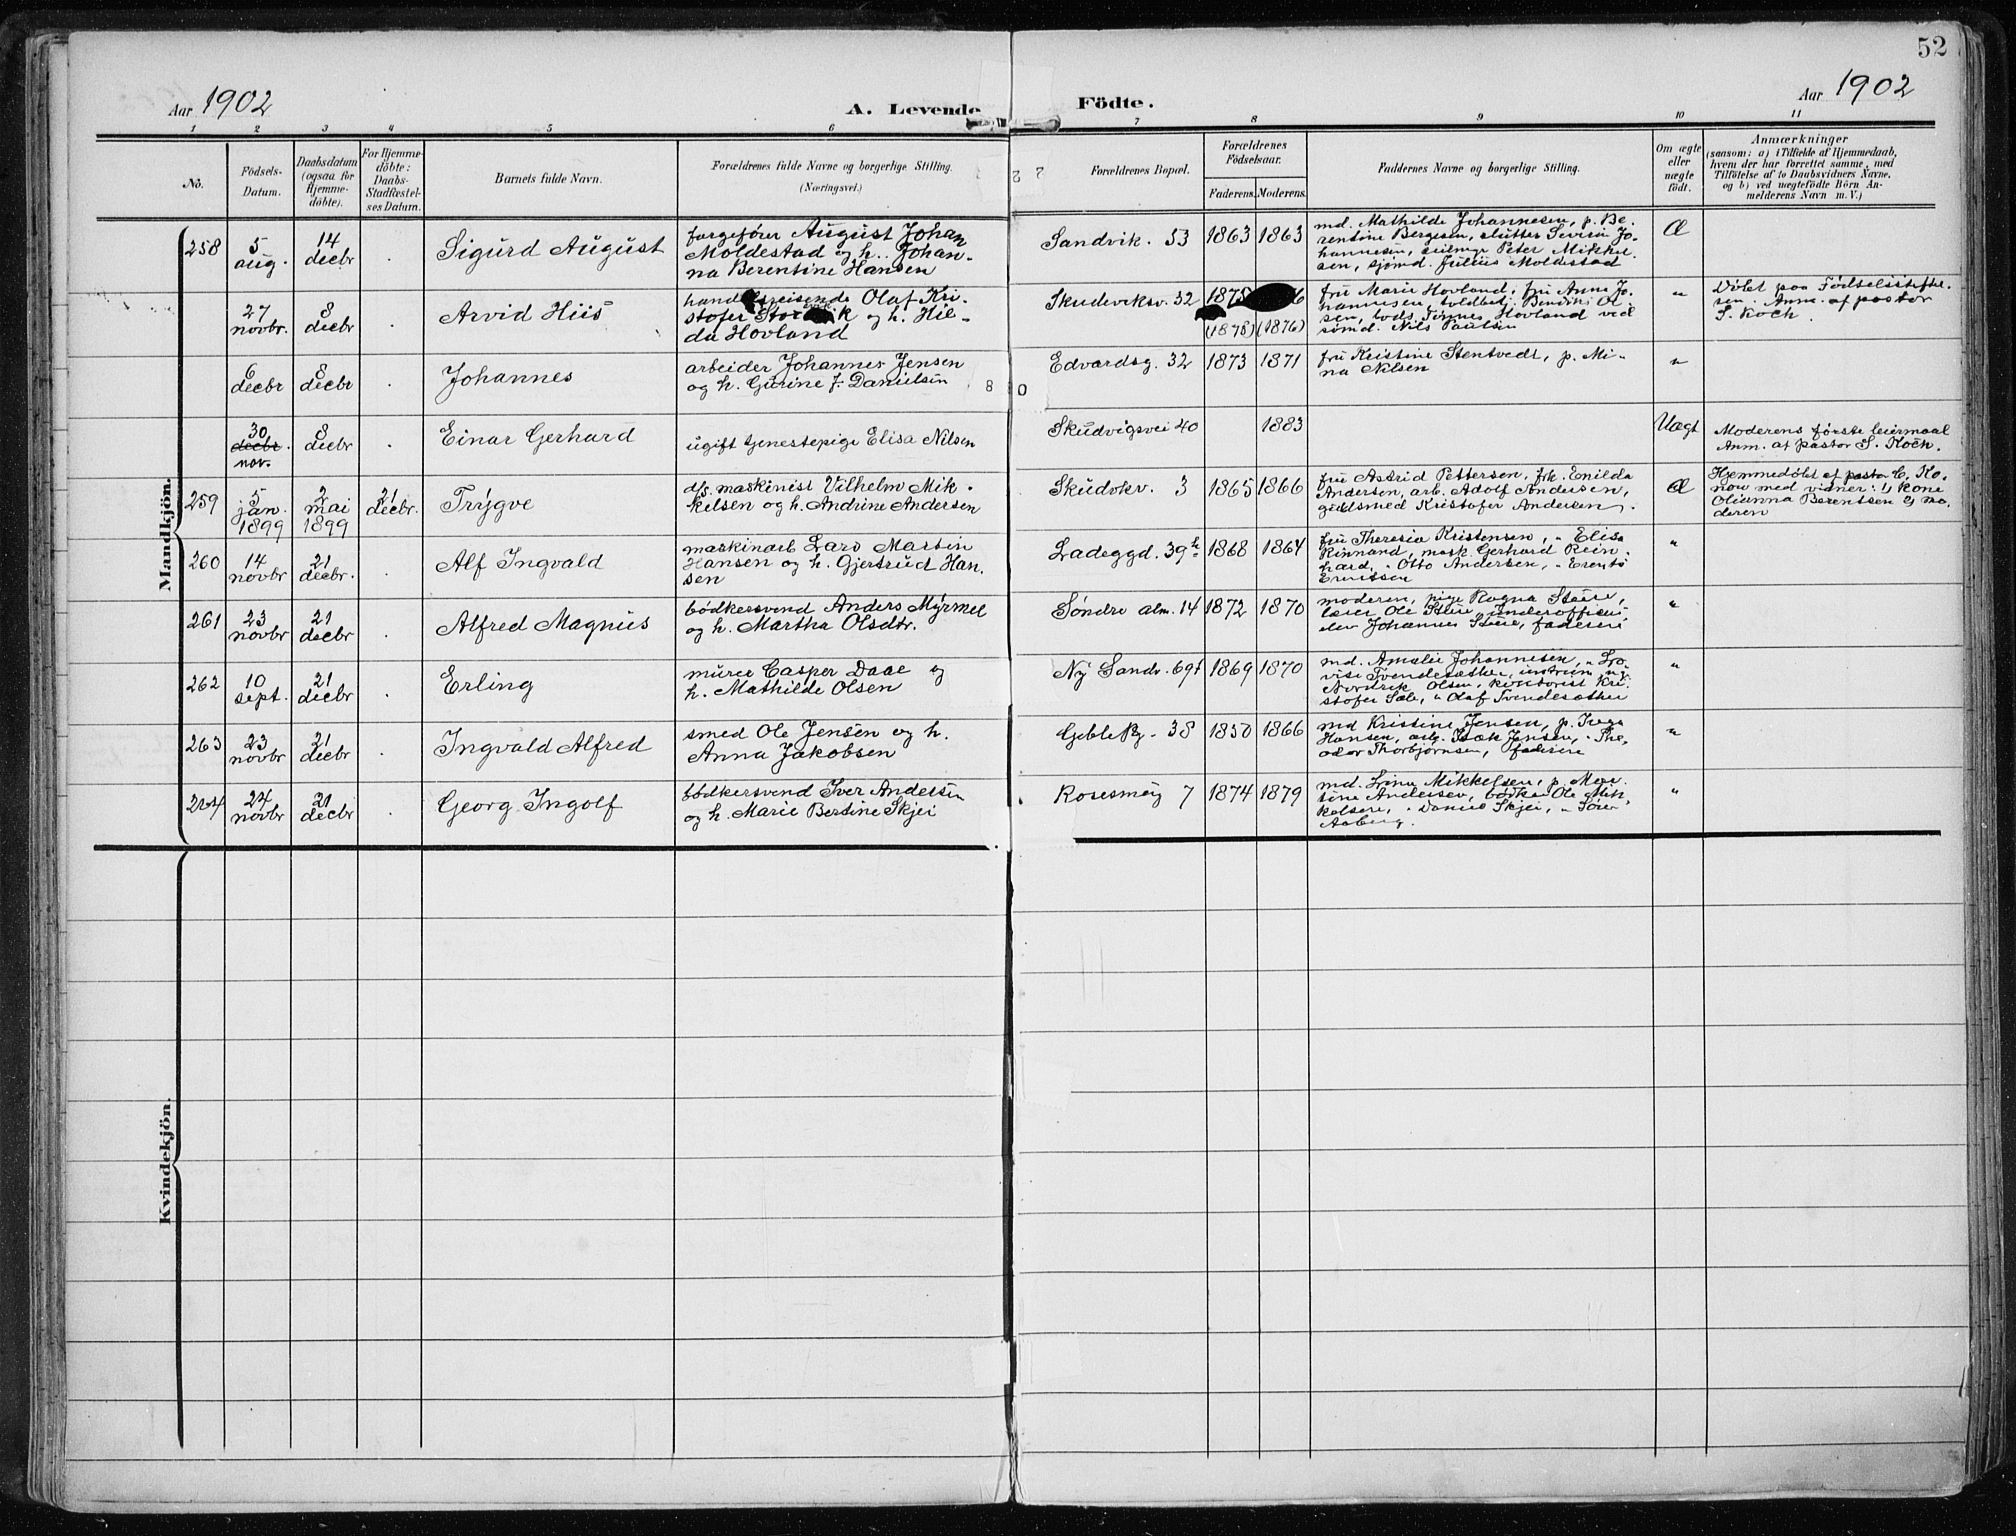 52
Aar 1902
A. Levende Födte.
Aar 1902
1 2 3 4 5 6 7 8 9 10 11
No.
Födsels-
Datum.
Daabsdatum
(ogsaa for
Hjemme-
döbte).
For Hjemme-
döbte:
Daabs-
Stadfæstel-
ses Datum.
Barnets fulde Navn.
Forældrenes fulde Navne og borgerlige Stilling.
(Næringsvei.)
Forældrenes Bopæl.
Forældrenes
Födselsaar.
Faderens. Moderens.
Faddernes Navne og borgerlige Stilling.
Om ægte
eller
uægte
födt.
Anmærkninger
(saasom: a) i Tilfælde af Hjemmedaab,
hvem der har forrettet samme, med
Tilföielse af to Daabsvidners Navne,
og b) ved uægtefödte Börn An-
melderens Navn m. V.)
Mandkjön.
258
5
aug.
14
decbr
Sigurd August
August Johan
Moldestad og h. Johan-
na Berentine Hansen
Sandvik. 53
1863 1863
md. Mathilde Johannesen, p. Be-
rentine Bergesen, Jo-
hannesen, Peter Mikkel
sen, sjömd. Julius Moldestad
Æ
27
novbr.
8
decbr
Arvid Hiis
handelsreisende Olaf Kri-
stofer og h. Hil-
da Hovland
Skudviksv. 32
1878
(1878) (1876)
fru Marie Hovland, fru Anna Jo-
hannesen, toldbetj. Ol
sen, Hovland ved
sømd. Nils Paulsen
"
Døbt paa Fødselsstifte-
sen. Anm. af pastor
S. Koch.
6
decbr
8
decbr
Johannes
arbeider Johannes Jensen
og h. Gurine f. Danielsen
Edvardsg. 32
1873 1871
fru Kristine Stentvedt, p. Mi-
na Nilsen
"
30
decbr.
nov.
8
decbr
Einar Gerhard
ugift tjenestepige Elisa Nilsen
Skudvigsvei 40
1883
Uægt
Moderens første leiermaal
Anm. af pastor S. Koch.
259
5
jan.
1899
2
mai
1899
21
decbr.
Trygve
ds. maskinist Vilhelm Mik-
kelsen og h. Andrine Andersen
Skudvkv. 3
1865 1866
fru Astrid Pettersen, frk. Enilda
Andersen, arb. Adolf Andersen,
guldsmed Kristofer Andersen.
Æ
Hjemmedøbt af pastor C. Ko-
now med vidner: 1) kone
Olianna Berentsen 2) mo-
deren
260
14
novbr
21
decbr.
Alf Ingvald
maskinarb Lars Martin
Hansen og h. Gjertrud Han-
sen
Ladeggd. 39b
1868 1864
fru Theresia Kristensen, " Elisa
Kinnand, mask. Gerhard Rein-
hard, " Otto Andersen,
"
261
23
novbr
21
decbr
Alfred Magnus
bødkersvend Anders Myrmel
og h. Martha Olsdtr.
Søndre alm. 14
1872 1870
moderen, pige Ragna
Ole underofficers
elev Johannes faderen
"
262
10
sept.
21
decbr
Erling
murer Casper Daae og
h. Mathilde Olsen
Ny Sandv. 69f
1869 1870
md. Amalie Johannesen, " Lo-
vise Tvendesæther, instrum
Olsen, kontorist Kri-
stofer Sæle, " Olaf Tvendesæther
"
263
23
novbr
21
decbr
Ingvald Alfred
smed Ole Jensen og h.
Anna Jakobsen
Geble Pg. 38
1850 1866
md Kristine Jensen, p. Inga
Hansen, arb. Isak Jensen, " The-
odor Thorbjørnsen, faderen
"
264
24
novbr
21
decbr
Georg Ingolf
bødkersvend Iver Andersen
og h. Marie Bertine Skjei
Rosesmug 7
1874 1879
md. Lina Mikkelsen, p. Mar-
tine Andersen, bødker Ole Mik-
kelsen, " Daniel Skjei,
Aaberg.
"
Kvindekjön.